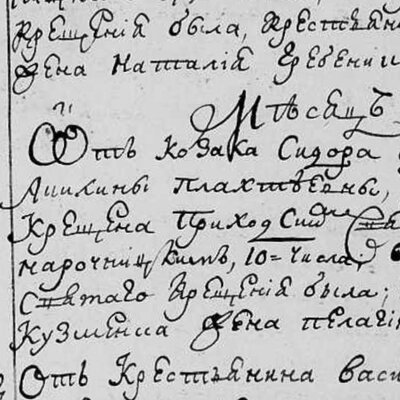 Крещенія была, Крестьян
Жена Наталія Гребенни
Мѣсяцъ
Отъ козака Сидора
Акилины Плахтѣевны,
Крещена Приход
нарочницкимъ, 10 = Числа,
Святаго Крещенія была;
Кузменка Жена пелагі
Отъ Крестьянина васи